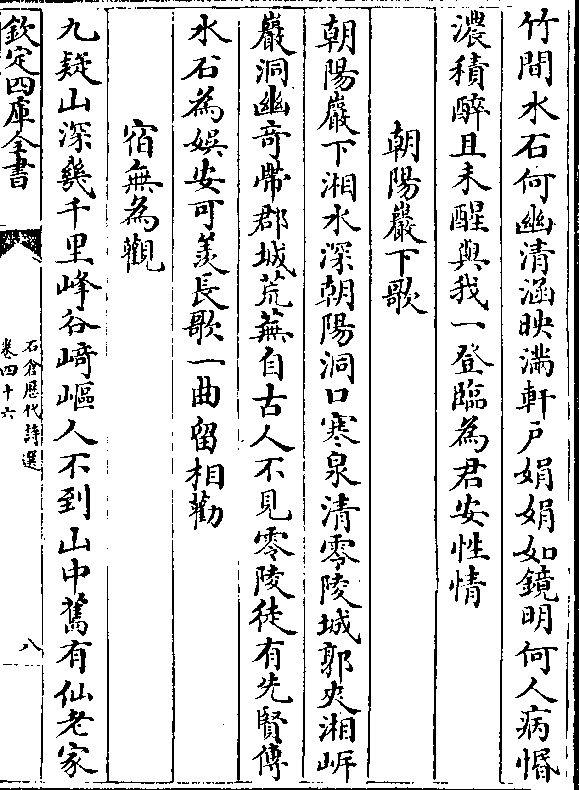 竹間水石何幽清涵映滿軒戶娟娟如鏡明何人病惛
濃積醉且未醒與我一登臨為君安性情
朝陽巖下歌
朝陽巖下湘水深朝陽洞口寒泉清零陵城郭夾湘岍
巖洞幽竒帶郡城荒蕪自古人不見零陵徒有先賢傳
水石為娛安可羨長歌一曲留相勸
宿無為觀
九疑山深幾千里峰谷﨑嶇人不到山中舊有仙老家
欽定四庫全書
石倉歴代詩選
卷四十六
八